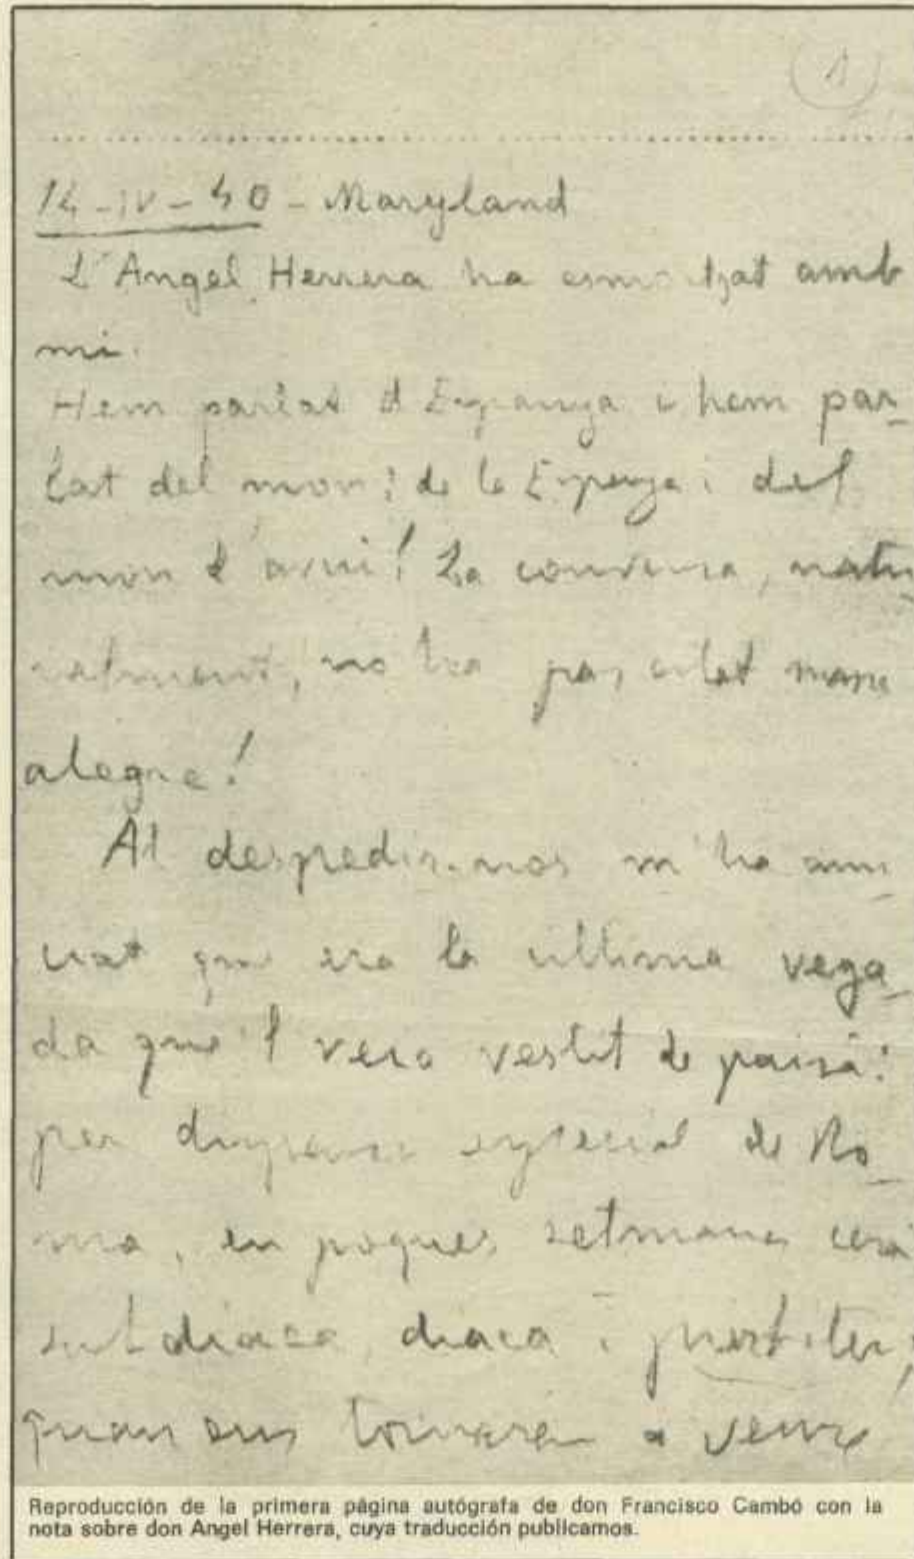 1
14-IV-40 - Maryland
L'Angel Herrera ha esmortzat amb
mi.
Hem parlat d'Espanya i hem par-
lat del mon: de la Espanya i del
mon d'avui! La conversa, natu-
ralment, no ha pas estat massa
alegre!
Al despedir-nos m'ha anun-
ciat que era la ultima vega-
da que'l veia vestit de paisà:
per dispensa especial de Ro-
ma, en poques setmanes serà
subdiaca, diaca i presbiter;
quan ens tornarem a veure
Reproducción de la primera página autógrafa de don Francisco Cambó con la
nota sobre don Angel Herrera, cuya traducción publicamos.